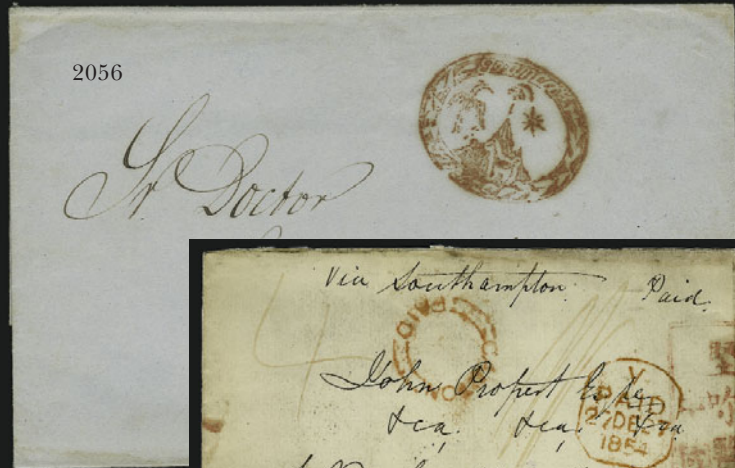 2056
Sr Doctor
Via Southampton. Paid.
PAID
John Propert Esqre
&ca. &ca. &ca
Y
PAID
27DE27
1854